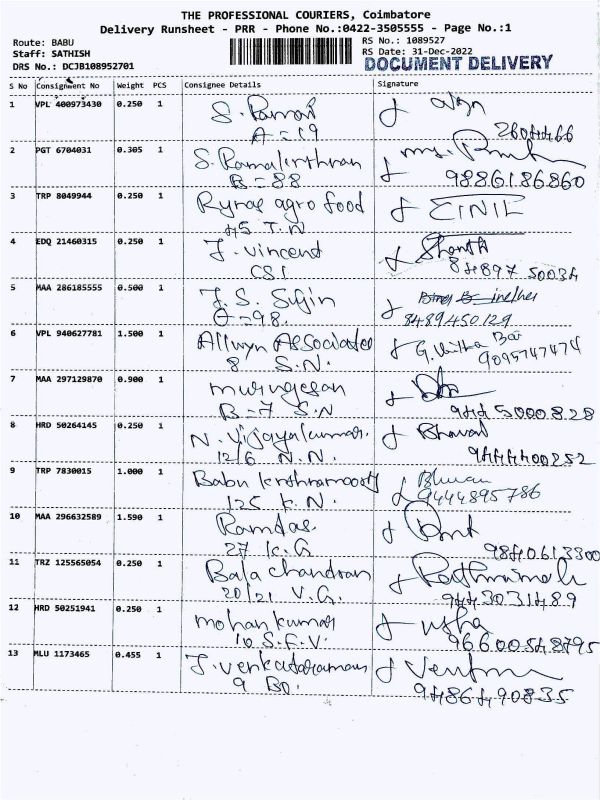 THE PROFESSIONAL COURIERS, Coimbatore
Delivery Runsheet - PRR - Phone No.:0422-3505555 - Page No.:1
Route: BABU
Staff: SATHISH
DRS No.: DCJB108952701
RS No.: 1089527
RS Date: 31-Dec-2022
DOCUMENT DELIVERY
S No Consignment No Weight PCS Consignee Details Signature
1 VPL 400973430 0.250 1 S. Raman
A = 19
2 PGT 6704031 0.305 1 S. Ramakrithnan
B = 88 9886186860
3 TRP 8049944 0.250 1 Rynas agro food
45 T.N
4 EDQ 21460315 0.250 1 J. Vincent Shanth
CSI 84897 50034
5 MAA 286185555 0.500 1 J. S. Sujin
98. 8489450129
6 VPL 940627781 1.500 1 Allwyn Associates G. Bai
8 S.N. 9095747474
7 MAA 297129870 0.900 1 murugesan
B=7 S.N 944 5000828
8 HRD 50264145 0.250 1 N. Vijayakumar. Bhavani
12/6 N.N. 9444400252
9 TRP 7830015 1.000 1 Babu krithramoorty Bhuvan
125 K.N. 9444895786
10 MAA 296632589 1.590 1 Ramdas.
27 K.G 9840613300
11 TRZ 125565054 0.250 1 Bala chandran
20/21 V.G. 9443031489
12 HRD 50251941 0.250 1 mohan kumar usha
10 S.F.V. 96600548795
13 MLU 1173465 0.455 1 J. venkataraman
9 9486490835